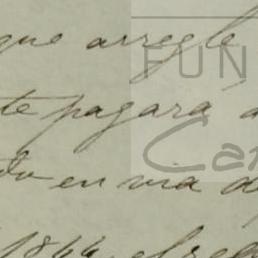 que arregle
FUN
te pagará a
Car
do en via d
1844, el re